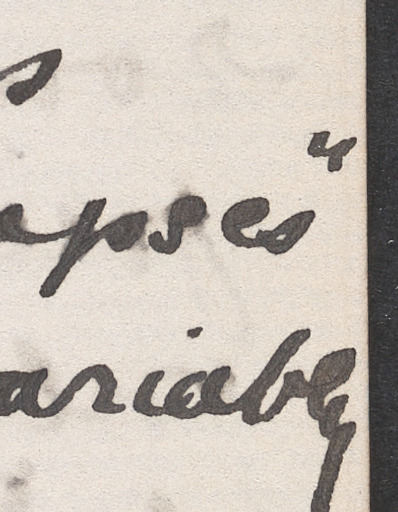 s
epses"
ariably